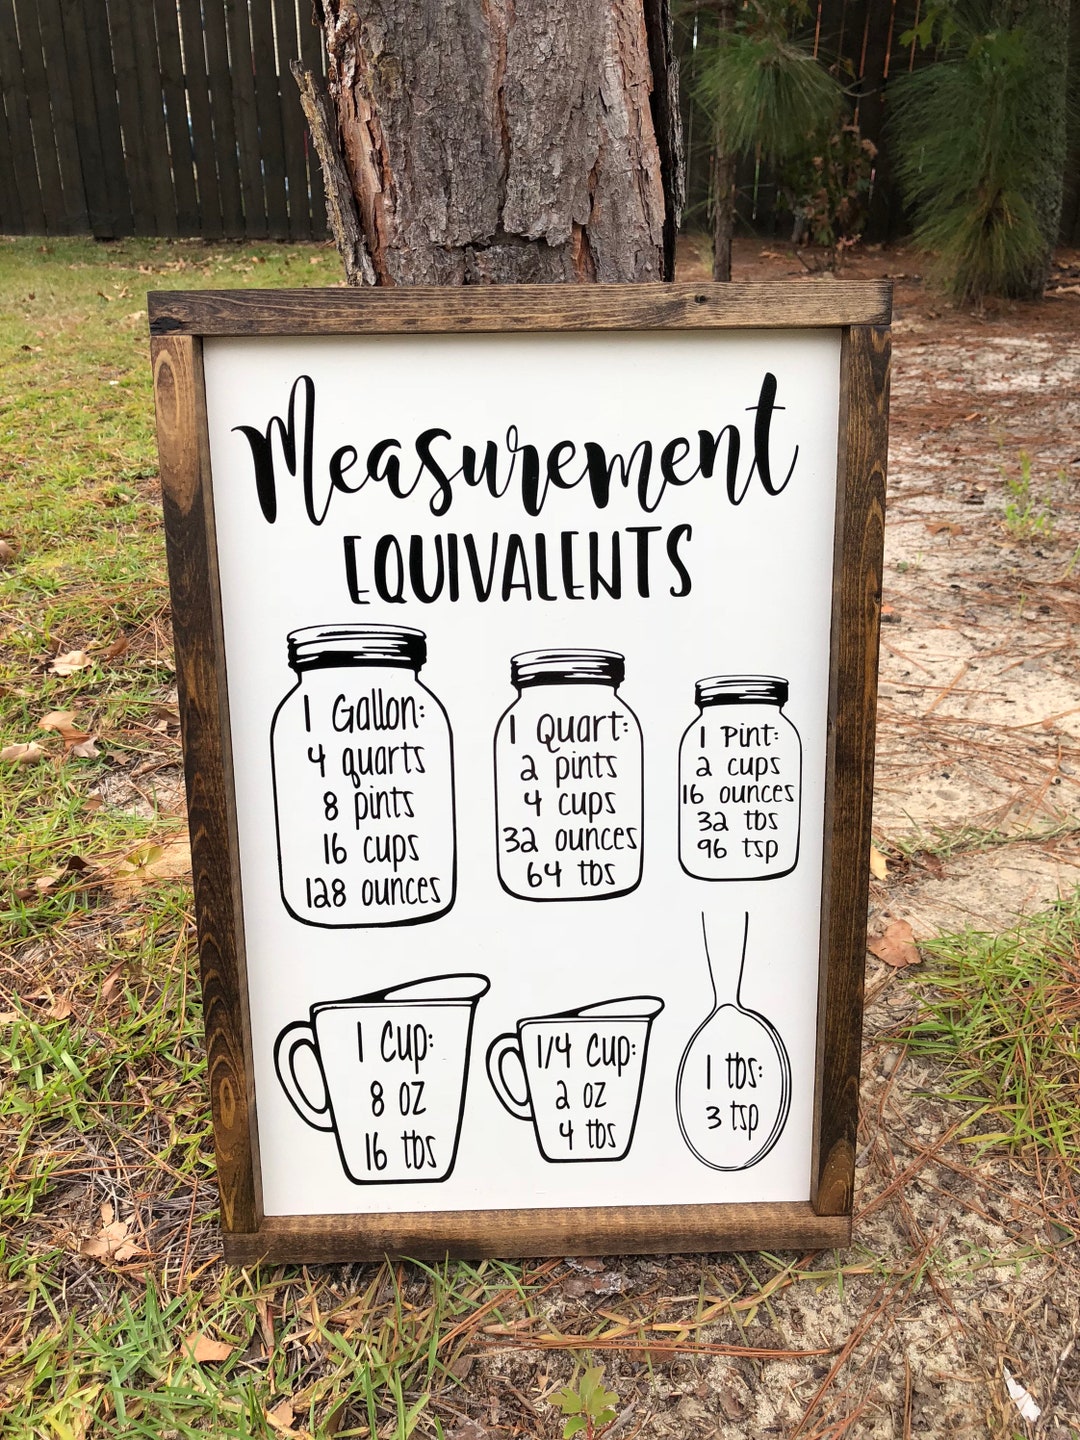 Measurement
EQUIVALENTS
1 Gallon:
4 quarts
8 pints
16 cups
128 ounces
1 Quart:
2 pints
4 cups
32 ounces
64 tbs
1 Pint:
2 cups
16 ounces
32 tbs
96 tsp
1 Cup:
8 oz
16 tbs
1/4 Cup:
2 oz
4 tbs
1 tbs:
3 tsp